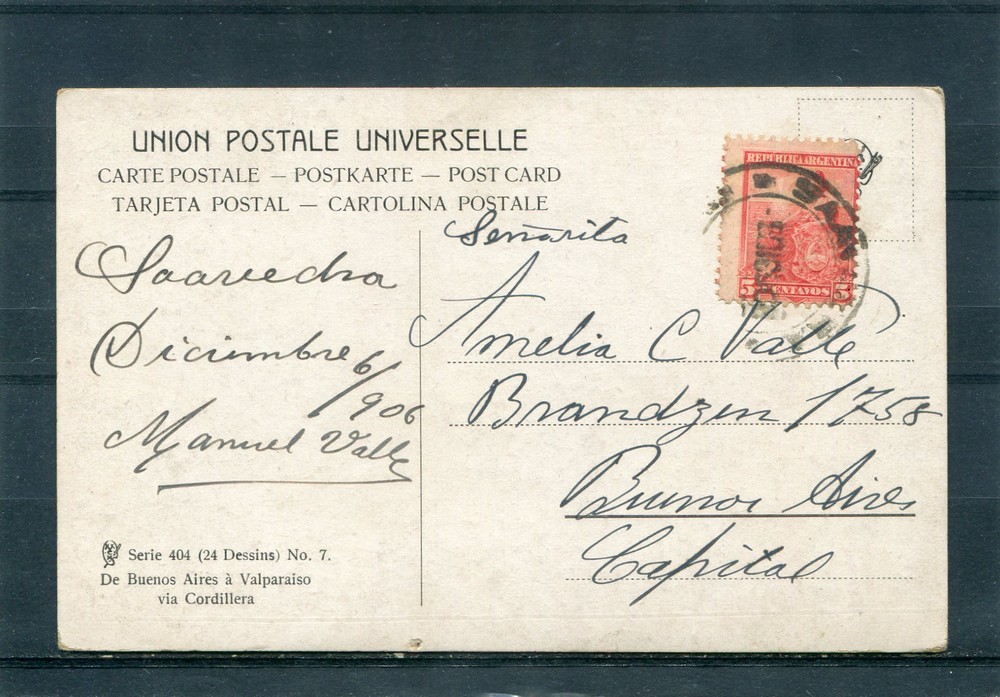 UNION POSTALE UNIVERSELLE
CARTE POSTALE — POSTKARTE — POST CARD
TARJETA POSTAL — CARTOLINA POSTALE
Saavedra
Diciembre 6/906
Manuel Valle
Serie 404 (24 Dessins) No. 7.
De Buenos Aires à Valparaiso
via Cordillera
REPUBLICA ARGENTINA
5 CENTAVOS 5
Señorita
Amelia C Valle
Brandzen 1758
Buenos Aires
Capital